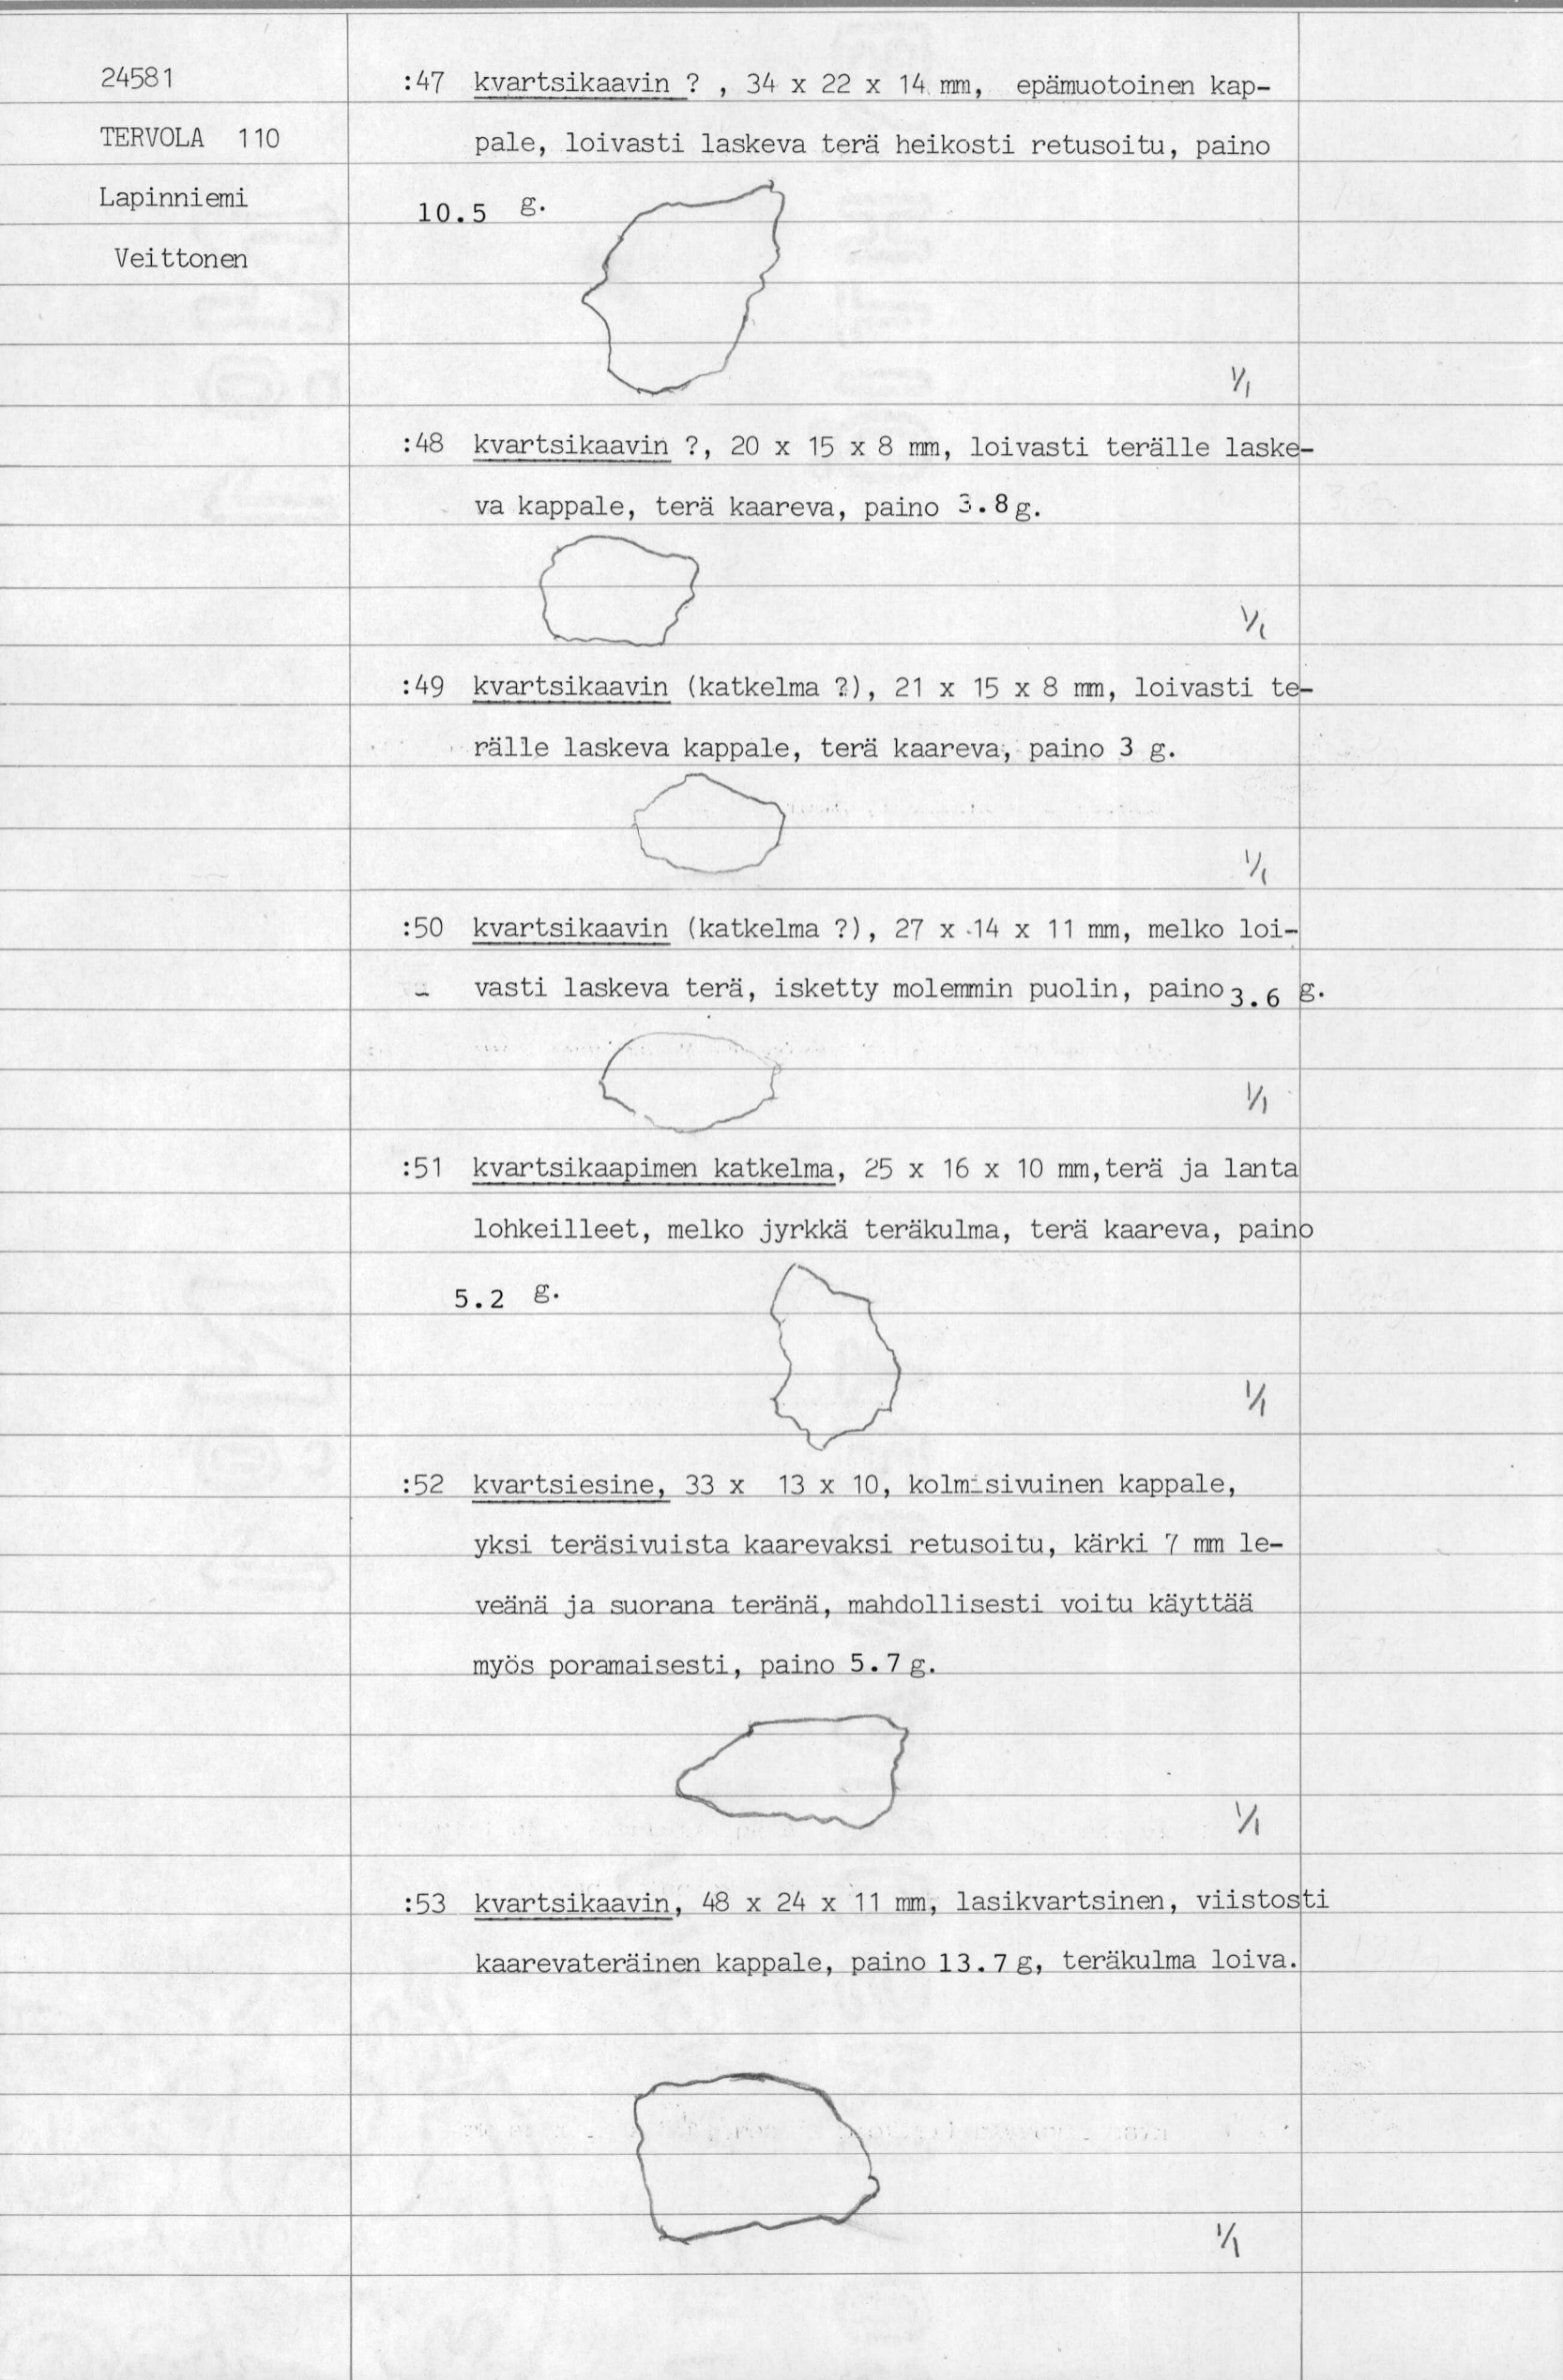 24581
TERVOLA 110
Lapinniemi
Veittonen
:47 kvartsikaavin ? , 34 x 22 x 14 mm, epämuotoinen kap-
pale, loivasti laskeva terä heikosti retusoitu, paino
10.5 g.
1/1
:48 kvartsikaavin ?, 20 x 15 x 8 mm, loivasti terälle laske-
va kappale, terä kaareva, paino 3.8 g.
1/1
:49 kvartsikaavin (katkelma ?), 21 x 15 x 8 mm, loivasti te-
rälle laskeva kappale, terä kaareva, paino 3 g.
1/1
:50 kvartsikaavin (katkelma ?), 27 x 14 x 11 mm, melko loi-
vasti laskeva terä, isketty molemmin puolin, paino 3.6 g.
1/1
:51 kvartsikaapimen katkelma, 25 x 16 x 10 mm, terä ja lanta
lohkeilleet, melko jyrkkä teräkulma, terä kaareva, paino
5.2 g.
1/1
:52 kvartsiesine, 33 x 13 x 10, kolmisivuinen kappale,
yksi teräsivuista kaarevaksi retusoitu, kärki 7 mm le-
veänä ja suorana teränä, mahdollisesti voitu käyttää
myös poramaisesti, paino 5.7 g.
1/1
:53 kvartsikaavin, 48 x 24 x 11 mm, lasikvartsinen, viistosti
kaarevateräinen kappale, paino 13.7 g, teräkulma loiva.
1/1